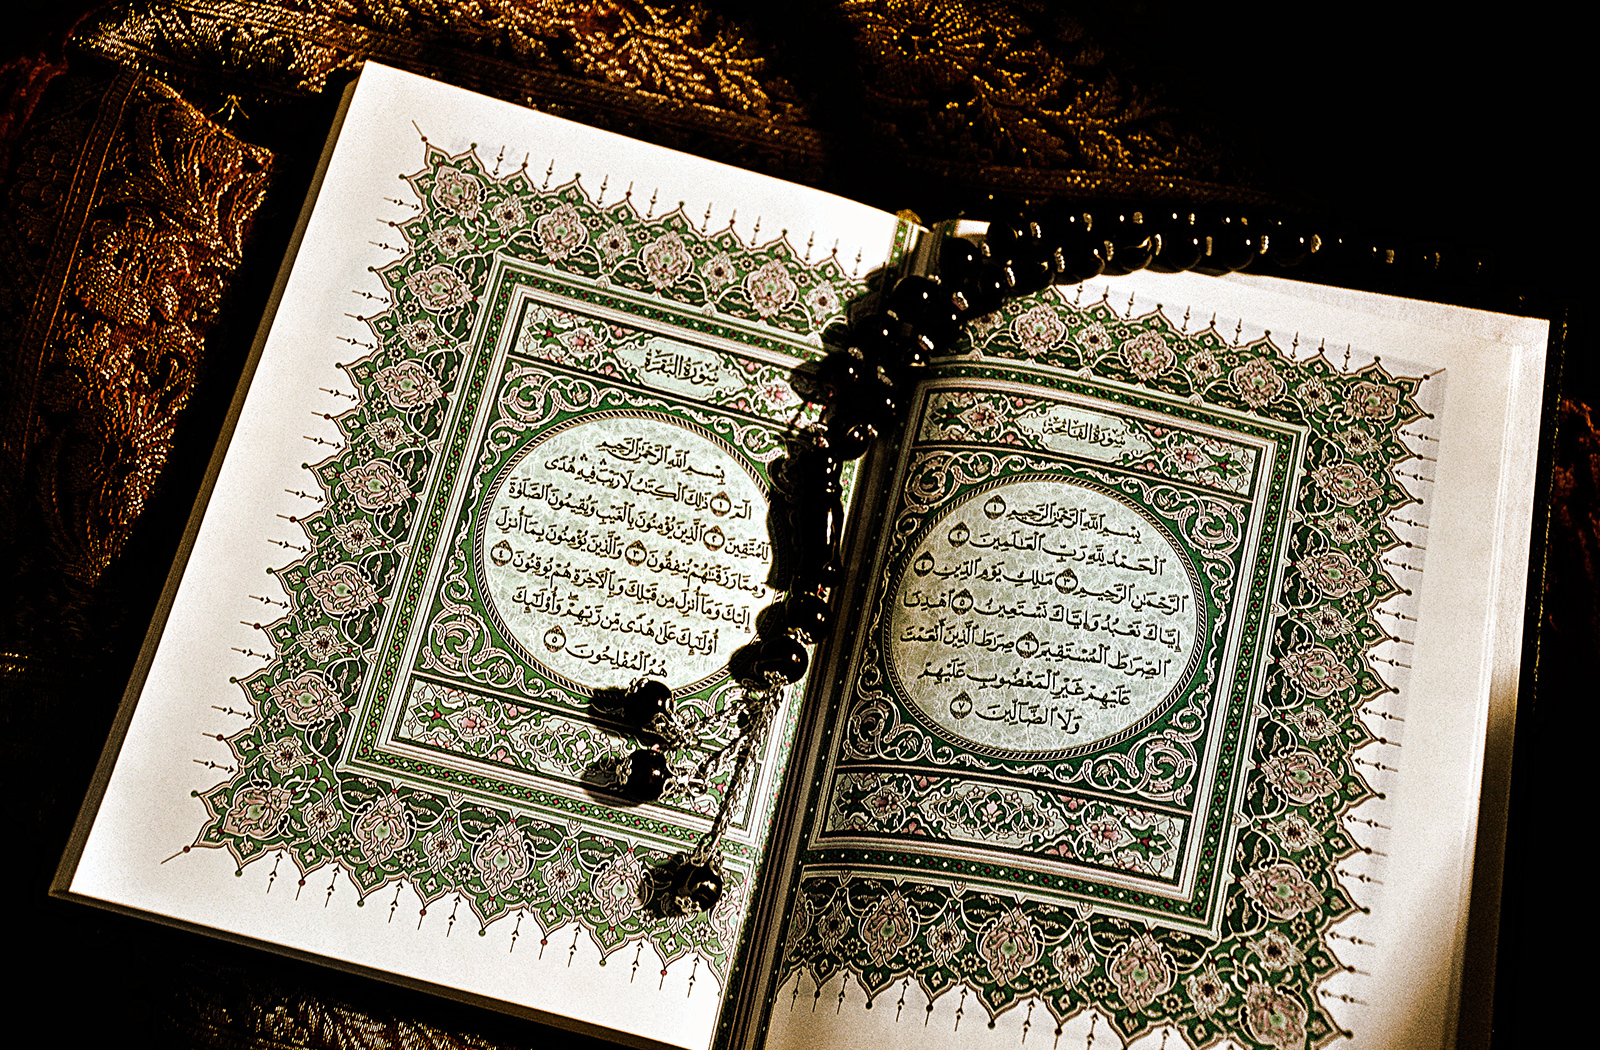 سُورَةُ الفَاتِحَةِ
بِسْمِ ٱللَّهِ ٱلرَّحْمَٰنِ ٱلرَّحِيمِ ١
ٱلْحَمْدُ لِلَّهِ رَبِّ ٱلْعَٰلَمِينَ ٢
ٱلرَّحْمَٰنِ ٱلرَّحِيمِ ٣ مَٰلِكِ يَوْمِ ٱلدِّينِ ٤
إِيَّاكَ نَعْبُدُ وَإِيَّاكَ نَسْتَعِينُ ٥ ٱهْدِنَا
ٱلصِّرَٰطَ ٱلْمُسْتَقِيمَ ٦ صِرَٰطَ ٱلَّذِينَ أَنْعَمْتَ
عَلَيْهِمْ غَيْرِ ٱلْمَغْضُوبِ عَلَيْهِمْ
وَلَا ٱلضَّآلِّينَ ٧
سُورَةُ البَقَرَةِ
بِسْمِ ٱللَّهِ ٱلرَّحْمَٰنِ ٱلرَّحِيمِ
الٓمٓ ١ ذَٰلِكَ ٱلْكِتَٰبُ لَا رَيْبَۛ فِيهِۛ هُدًى
لِّلْمُتَّقِينَ ٢ ٱلَّذِينَ يُؤْمِنُونَ بِٱلْغَيْبِ وَيُقِيمُونَ ٱلصَّلَوٰةَ
وَمِمَّا رَزَقْنَٰهُمْ يُنفِقُونَ ٣ وَٱلَّذِينَ يُؤْمِنُونَ بِمَآ أُنزِلَ
إِلَيْكَ وَمَآ أُنزِلَ مِن قَبْلِكَ وَبِٱلْءَاخِرَةِ هُمْ يُوقِنُونَ ٤
أُو۟لَٰٓئِكَ عَلَىٰ هُدًى مِّن رَّبِّهِمْ وَأُو۟لَٰٓئِكَ
هُمُ ٱلْمُفْلِحُونَ ٥